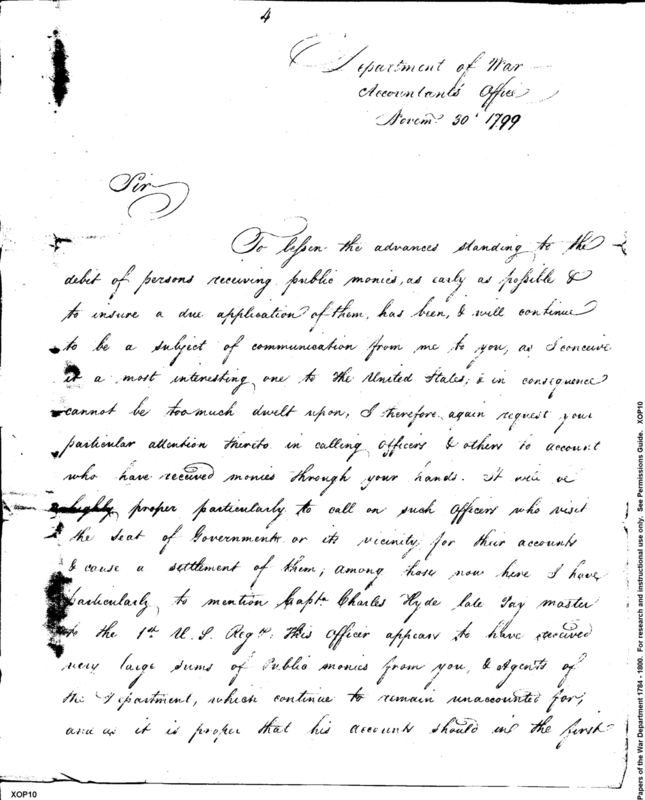 4
Department of War
Accountants Office
Novemr. 30' 1799
Sir
To lessen the advances standing to the
debit of persons receiving public monies, as early as possible &
to insure a due application of them, has been, & will continue
to be a subject of communication from me to you, as I conceive
it a most interesting one to the United States; & in consequence
cannot be too much dwelt upon, I therefore again request your
particular attention thereto in calling Officers & others to account
who have received monies through your hands. It will be
highly proper particularly to call on such Officers who visit
the seat of Government or its vicinity for their accounts
& cause a settlement of them; among those now here I have
particularly to mention Captn. Charles Hyde late Pay master
to the 1st U.S. Regt. This Officer appears to have received
very large sums of Public monies from you, & Agents of
the Department, which continue to remain unaccounted for;
and as it is proper that his accounts should in the first
XOP10
Papers of the War Department 1784 - 1800. For research and instructional use only. See Permissions Guide. XOP10